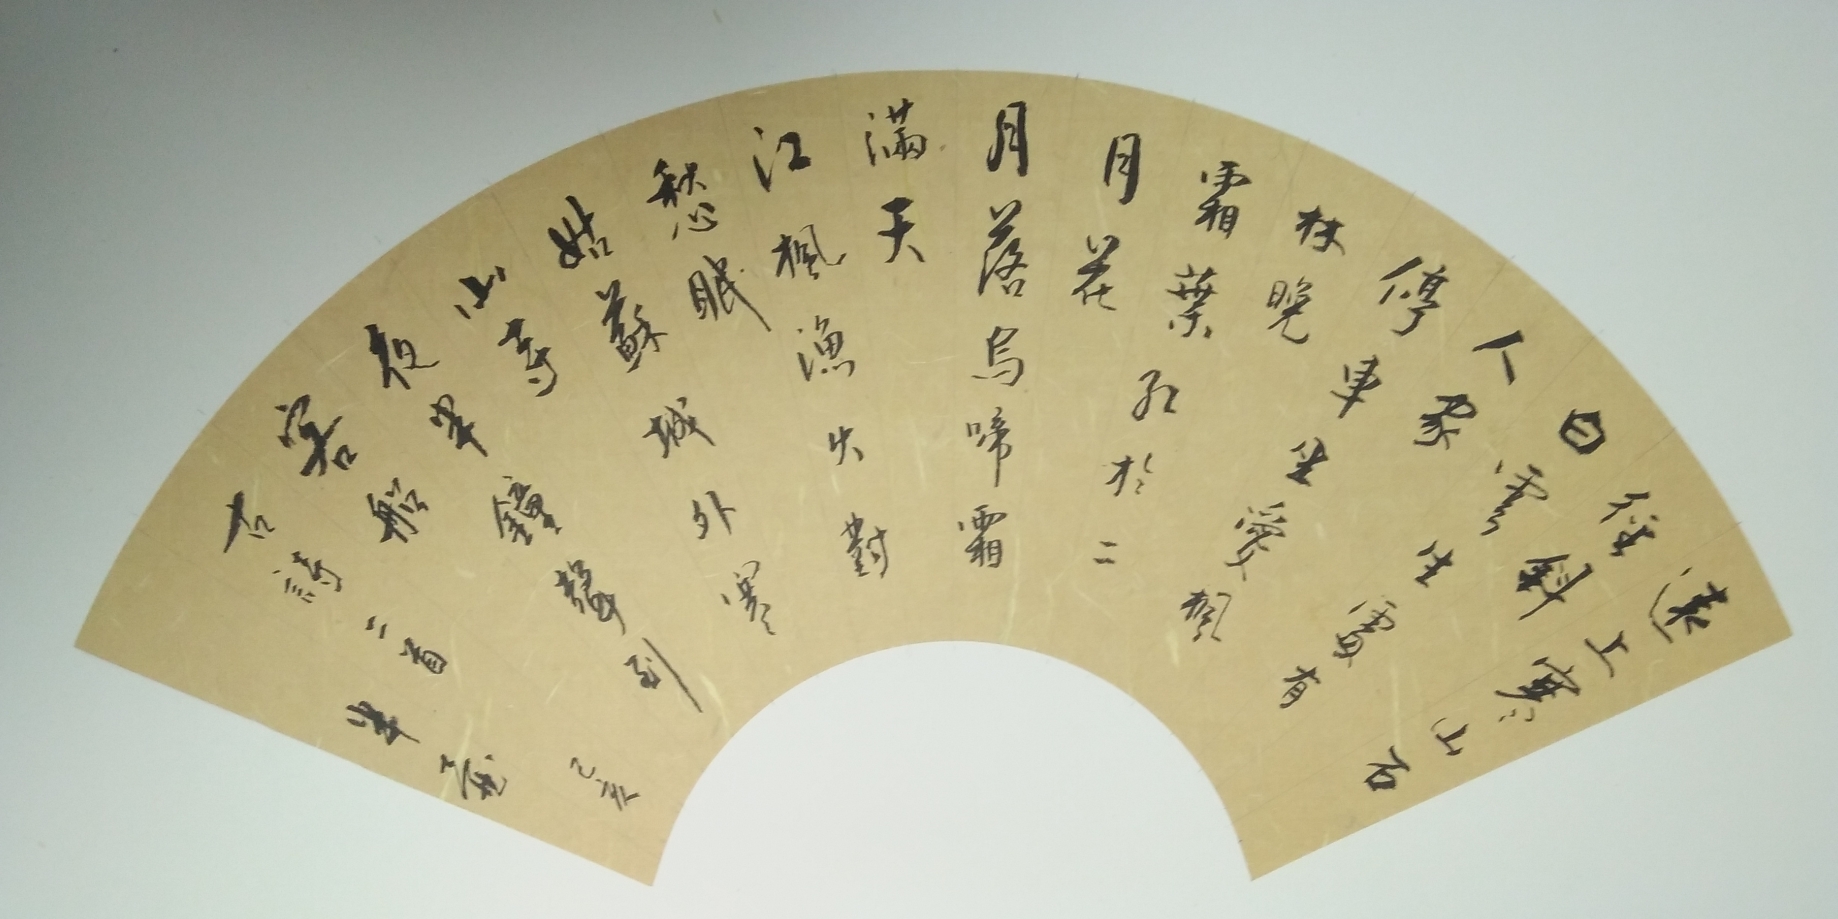 遠上寒山石
徑斜
白雲生處有
人家
停車坐愛楓
林晚
霜葉紅於二
月花
月落烏啼霜
滿天
江楓漁火對
愁眠
姑蘇城外寒
山寺
夜半鐘聲到
客船
古詩二首 己亥